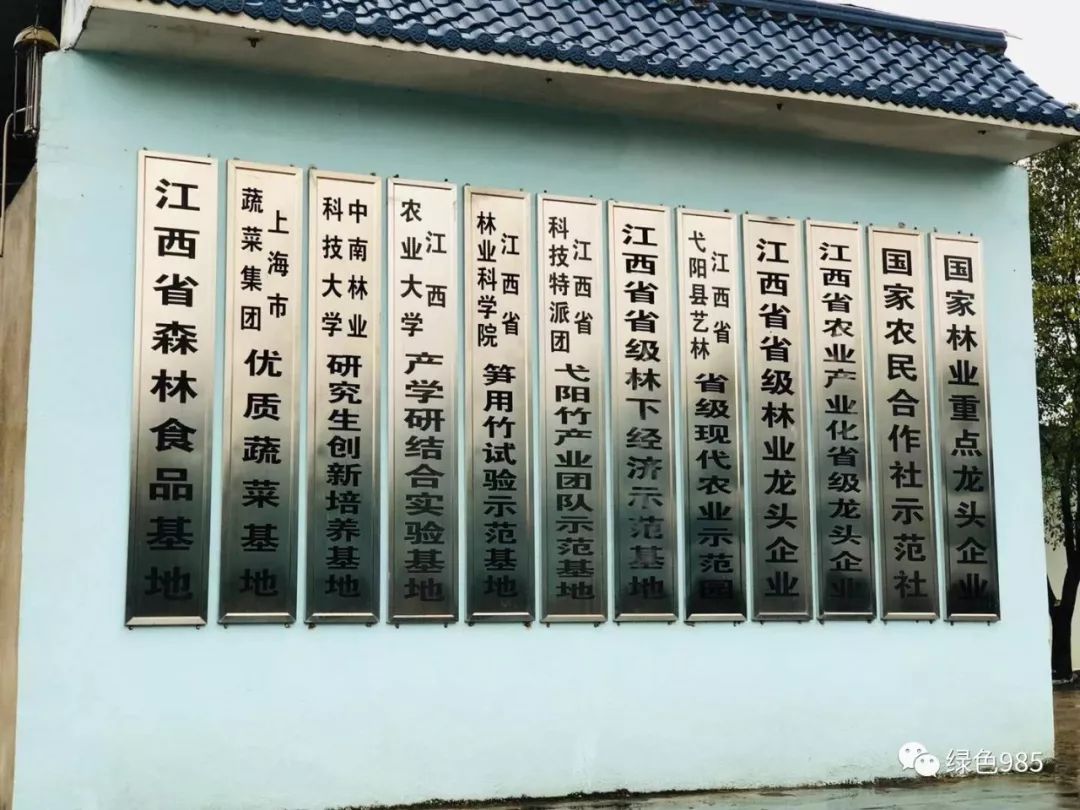 江西省森林食品基地
上海市
蔬菜集团
优质蔬菜基地
中南林业
科技大学
研究生创新培养基地
江西
农业大学
产学研结合实验基地
江西省
林业科学院
笋用竹试验示范基地
江西省
科技特派团
弋阳竹产业团队示范基地
江西省省级林下经济示范基地
江西省
弋阳县艺林
省级现代农业示范园
江西省省级林业龙头企业
江西省农业产业化省级龙头企业
国家农民合作社示范社
国家林业重点龙头企业
绿色985